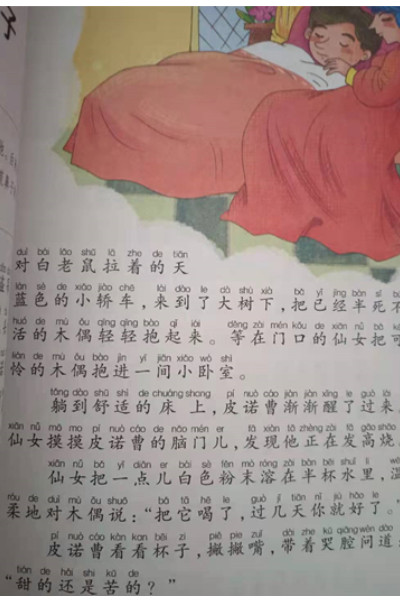 duì bái lǎo shǔ lā zhe de tiān
对白老鼠拉着的天
lán sè de xiǎo jiào chē lái dào le dà shù xià bǎ yǐ jīng bàn sǐ bù
蓝色的小轿车，来到了大树下，把已经半死不
huó de mù ǒu qīng qīng bào qǐ lái děng zài mén kǒu de xiān nǚ bǎ kě
活的木偶轻轻抱起来。等在门口的仙女把可
lián de mù ǒu bào jìn yì jiān xiǎo wò shì
怜的木偶抱进一间小卧室。
tǎng dào shū shì de chuáng shang pí nuò cáo jiàn jiàn xǐng le guò lái
躺到舒适的床上，皮诺曹渐渐醒了过来
xiān nǚ mō mo pí nuò cáo de nǎo mén er fā xiàn tā zhèng zài fā gāo shāo
仙女摸摸皮诺曹的脑门儿，发现他正在发高烧
xiān nǚ bǎ yì diǎn er bái sè fěn mò róng zài bàn bēi shuǐ lǐ wēn
仙女把一点儿白色粉末溶在半杯水里，温
róu de duì mù ǒu shuō bǎ tā hē le guò jǐ tiān nǐ jiù hǎo le
柔地对木偶说：“把它喝了，过几天你就好了。
pí nuò cáo kàn kan bēi zi piě pie zuǐ dài zhe kū qiāng wèn dào
皮诺曹看看杯子，撇撇嘴，带着哭腔问道
tián de hái shi kǔ de
“甜的还是苦的？”